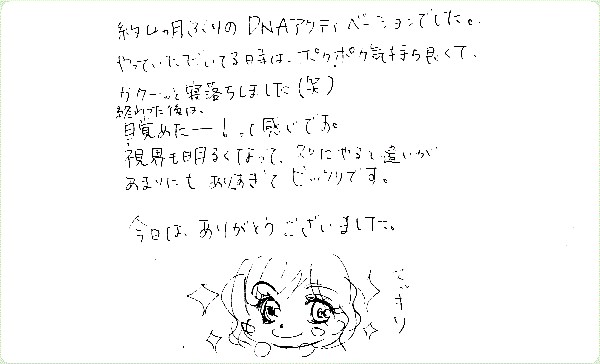 約4ヶ月ぶりのDNAアクティベーションでした。
やっていただいてる時は、ポクポク気持ち良くて、
カクーっと寝落ちしました(笑)
終わった後は、
目覚めたー!って感じです。
視界も明るくなって、久々にやると違いが
あまりにもありすぎてビックリです。
今日は、ありがとうございました。
すっきり